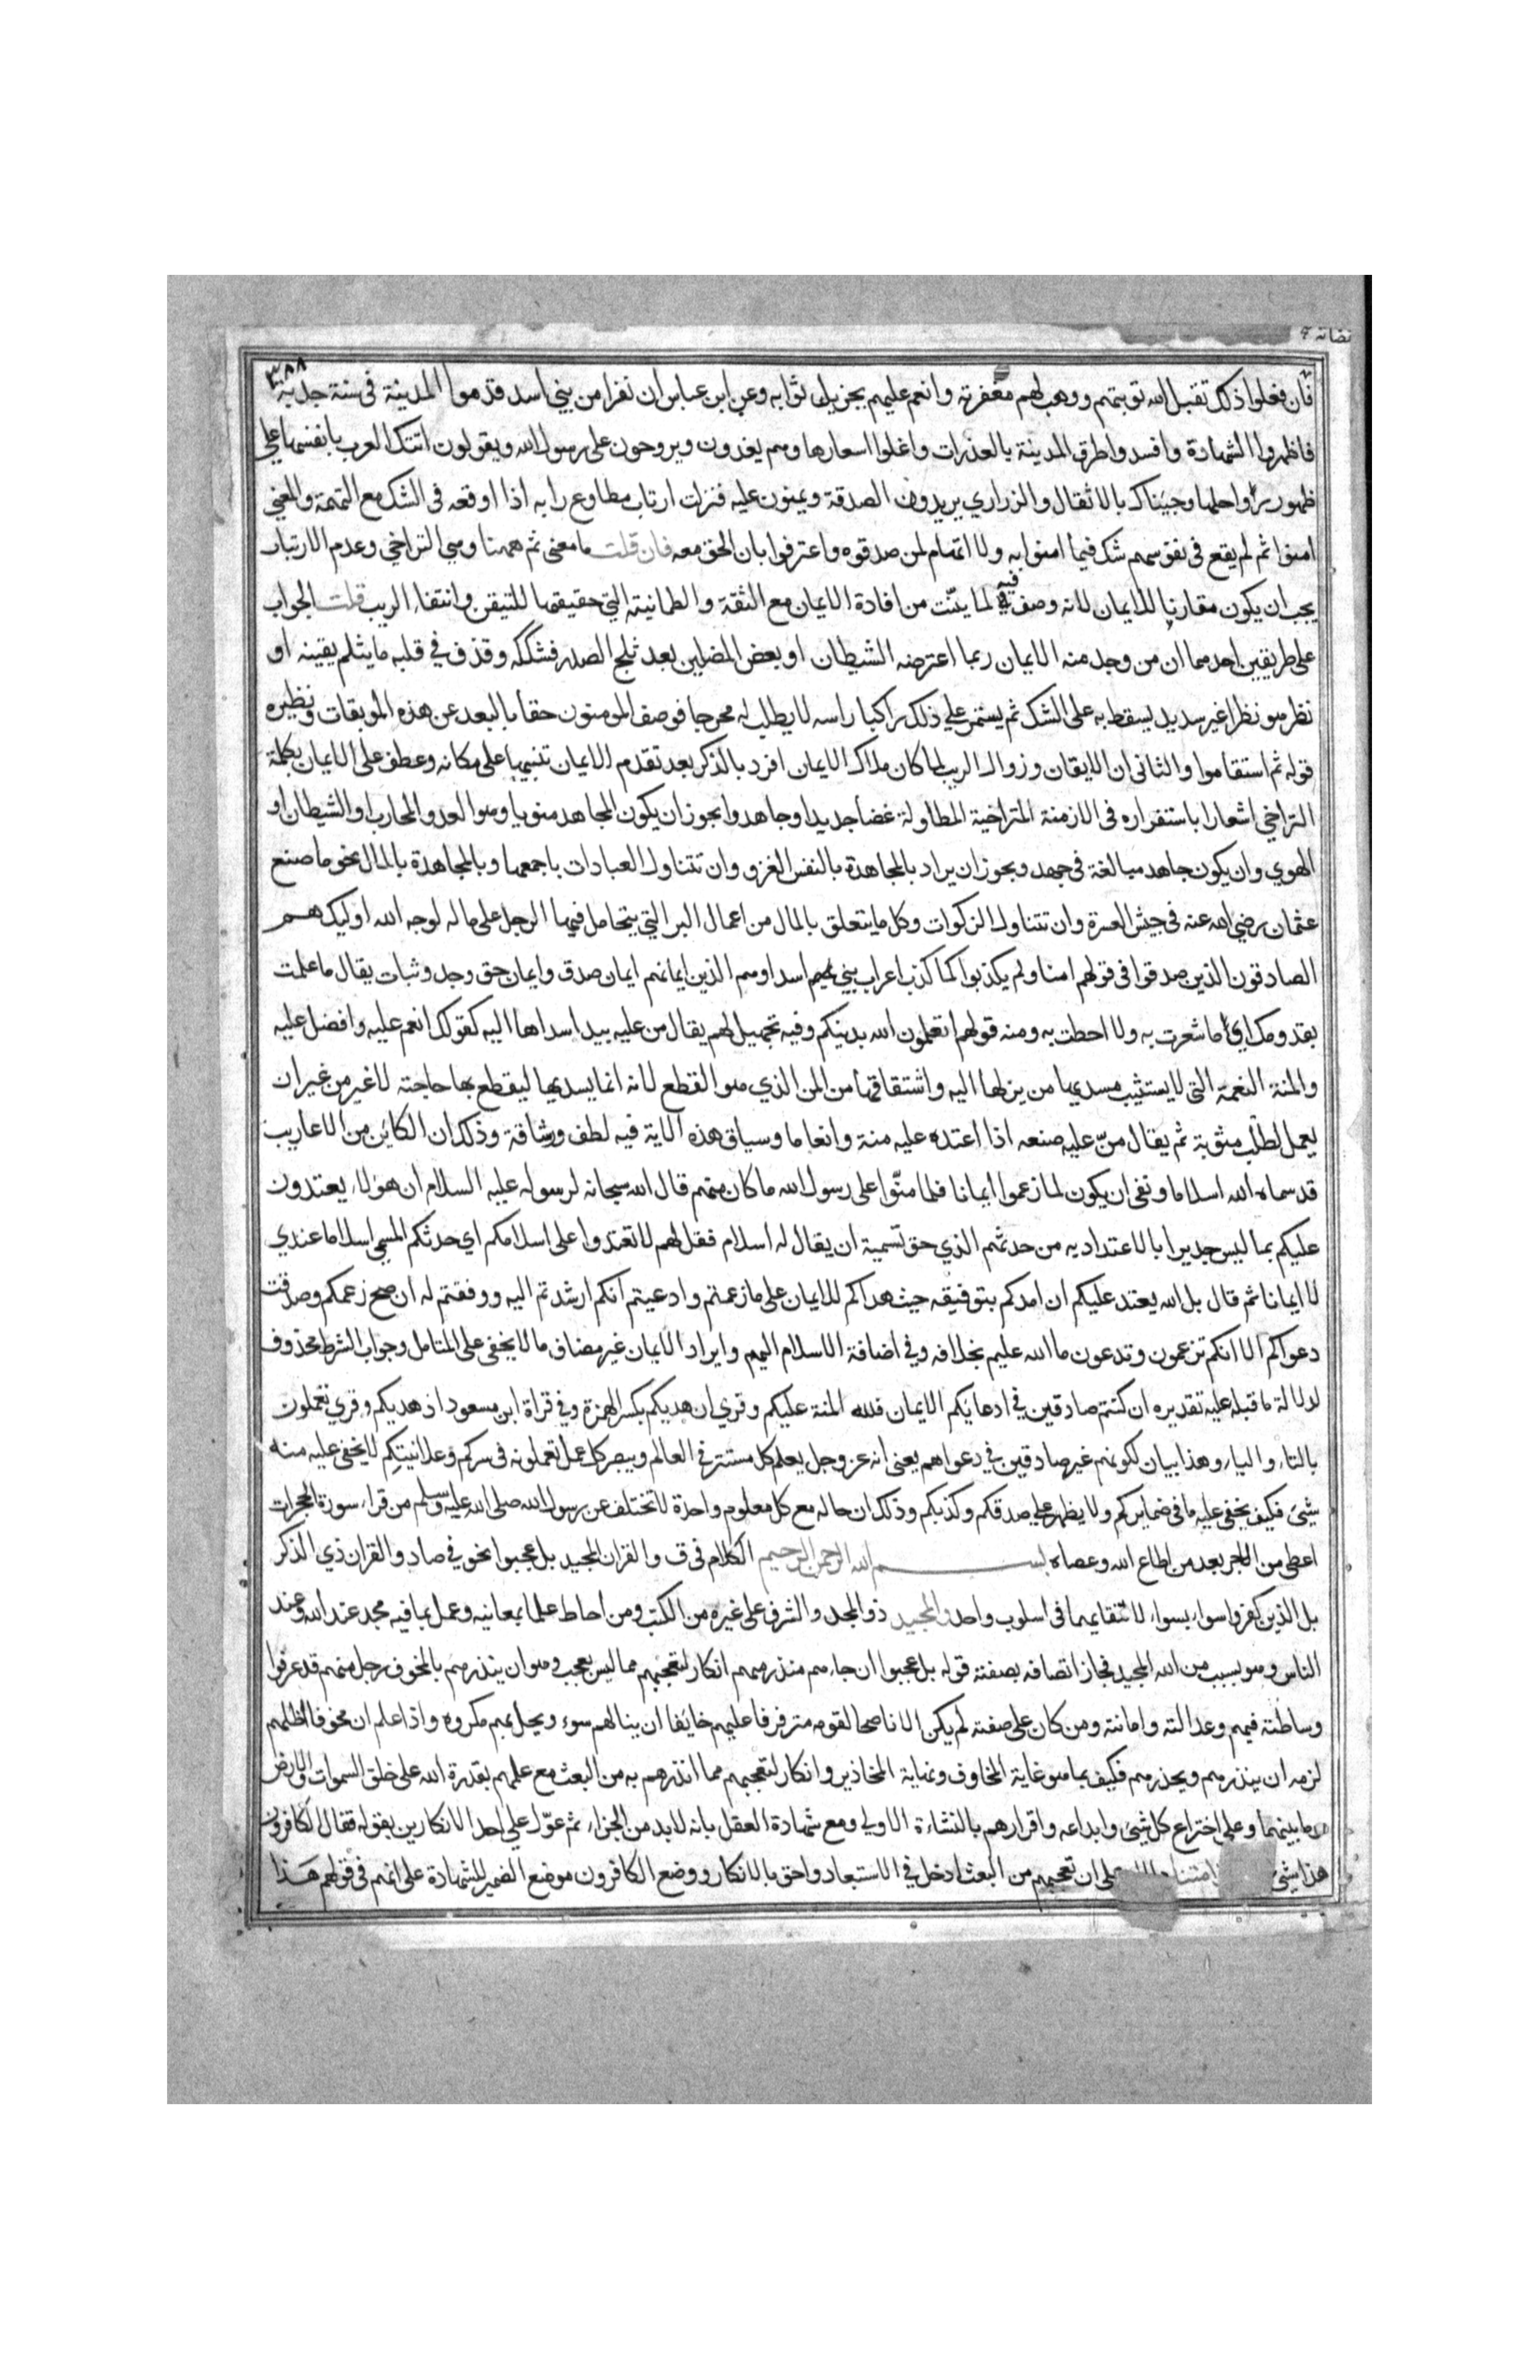 فان فعلوا ذلك تقبل الله توبتهم ووهب لهم مغفرته وانعم عليهم بجزيل ثوابه وعن ابن عباس ان نفرا من بني اسد قدموا المدينة في سنة جدبة
فاظهروا الشهادة وافسدوا طرق المدينة بالعذرات واغلوا اسعارها وهم يغدون ويروحون على رسول الله ويقولون اتتك العرب بانفسها على
ظهور رواحلها وجيناك بالاثقال والذراري يريدون الصدقة ويمنون عليه فنزلت ارتاب مطاوع رابه اذا اوقعه في الشك مع التهمة والمعنى
امنوا ثم لم يقع في نفوسهم شك فيما امنوا به ولا اتهام لمن صدقوه واعترفوا بان الحق معه فان قلت ما معنى ثم ههنا وهي التراخي وعدم الارتياب
يجب ان يكون مقارنا للايمان لانه وصف فيه لما بينت من افادة الايمان مع الثقة والطمانينة التي حقيقتها للتيقن وانتفاء الريب قلت الجواب
على طريقين احدهما ان من وجد منه الايمان ربما اعترضه الشيطان او بعض المضلين بعد ثلج الصدر فشككه وقذف في قلبه ما يثلم يقينه او
نظر هو نظرا غير سديد يسقط به على الشك ثم يستمر على ذلك راكبا راسه لا يطلب له مخرجا فوصف المومنون حقا بالبعد عن هذه الموبقات ونظيره
قوله ثم استقاموا والثاني ان الايقان وزوال الريب لما كان ملاك الايمان افرد بالذكر بعد تقدم الايمان تنبيها على مكانه وعطف على الايمان بكلمة
التراخي اشعارا باستقراره في الازمنة المتراخية المطاولة غضا جديدا وجاهدوا يجوز ان يكون المجاهد منويا وهو العدو المحارب او الشيطان او
الهوي وان يكون جاهد مبالغة في جهد ويجوز ان يراد بالمجاهدة بالنفس الغزو وان تتناول العبادات باجمعها وبالمجاهدة بالمال نحو ما صنع
عثمان رضي الله عنه في جيش العسرة وان تتناول الزكوات وكل ما يتعلق بالمال من اعمال البر التي يتحامل فيها الرجل على ماله لوجه الله اوليك هم
الصادقون الذين صدقوا في قولهم امنا ولم يكذبوا كما كذب اعراب بني اسد او هم الذين ايمانهم ايمان صدق وايمان حق وجد وثبات يقال ما علمت
بقدومك اي ما شعرت به ولا احطت به ومنه قولهم اتعلمون الله بدينكم وفيه تجهيل لهم يقال من عليه بيد اسداها اليه كقولك انعم عليه وافضل عليه
والمنة النعمة التي لا يستثيب مسديها من يزلها اليه واشتقاقها من المن الذي هو القطع لانه انما يسديها ليقطع بها حاجته لا غير من غير ان
يعمل لطلب مثوبة ثم يقال من عليه صنعه اذا اعتده عليه منة وانعاما وسياق هذه الاية فيه لطف ورشاقة وذلك ان الكاين من الاعاريب
قد سماه الله اسلاما ونفى ان يكون لما زعموا ايمانا فلما منوا على رسول الله ما كان منهم قال الله سبحانه لرسوله عليه السلام ان هولاء يعتدون
عليكم بما ليس جديرا بالاعتداد به من حدثهم الذي حق تسمية ان يقال له اسلام فقل لهم لا تعتدوا على اسلامكم اي حدثكم المسمي اسلاما عندي
لا ايمانا ثم قال بل الله يعتد عليكم ان امدكم بتوفيقه حيث هداكم للايمان على ما زعمتم وادعيتم انكم ارشدتم اليه ووفقتم له ان صح زعمكم وصدقت
دعواكم الا انكم تزعمون وتدعون ما الله عليم بخلافه وفي اضافة الاسلام اليهم وايراد الايمان غير مضاف ما لا يخفى على المتامل وجواب الشرط محذوف
لدلالة ما قبله عليه تقديره ان كنتم صادقين في ادعايكم الايمان فلله المنة عليكم وقري ان هديكم بكسر الهمزة وفي قراة ابن مسعود اذ هديكم وقري تعملون
بالتاء والياء وهذا بيان لكونهم غير صادقين في دعواهم يعني انه عز وجل يعلم كل مستتر في العالم ويبصر كل عمل تعملونه في سركم وعلانيتكم لا يخفى عليه منه
شيئ فكيف يخفى عليه ما في ضمايركم ولا يظهر على صدقكم وكذبكم وذلك ان حاله مع كل معلوم واحدة لا تختلف عن رسول الله صلى الله عليه وسلم من قراء سورة الحجرات
اعطى من الاجر بعدد من اطاع الله وعصاه بسم الله الرحمن الرحيم الكلام في ق والقران المجيد بل عجبوا نحوه في صاد والقران ذي الذكر
بل الذين كفروا سواء بسواء لالتقايهما في اسلوب واحد والمجيد ذو المجد والشرف على غيره من الكتب ومن احاط علما بمعانيه وعمل بما فيه مجد عند الله وعند
الناس وهو بسبب من الله المجيد فجاز اتصافه بصفته قوله بل عجبوا ان جاءهم منذر منهم انكار لتعجبهم مما ليس بعجب وهو ان ينذرهم بالمخوف رجل منهم قد عرفوا
وساطته فيهم وعدالته وامانته ومن كان على صفته لم يكن الا ناصحا لقومه مترفرفا عليهم خايفا ان ينالهم سوء ويحل بهم مكروه واذا علم ان مخوفا اظلهم
لزمه ان ينذرهم ويحذرهم فكيف بما هو غاية المخاوف ونهاية المحاذير وانكار لتعجبهم مما انذرهم به من البعث مع علمهم بقدرة الله على خلق السموات والارض
وما بينهما وعلى اختراع كل شيئ وابداعه واقرارهم بالنشاءة الاولي ومع شهادة العقل بانه لا بد من الجزاء ثم عول على احد الانكارين بقوله فقال الكافرون
هذا شيئ متنا على ان تعجبهم من البعث ادخل في الاستبعاد واحق بالانكار ووضع الكافرون موضع الضمير للشهادة على انهم في قولهم هذا